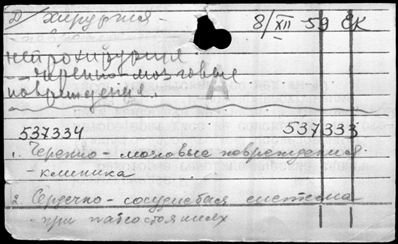 Д/ хирургия - 8/XII 59 СК
нейрохирургия
- черепно-мозговые
повреждения.
537334 537333
1. Черепно-мозговые повреждения -
- клиника
2. Сердечно-сосудистая система
- при патсостояниях